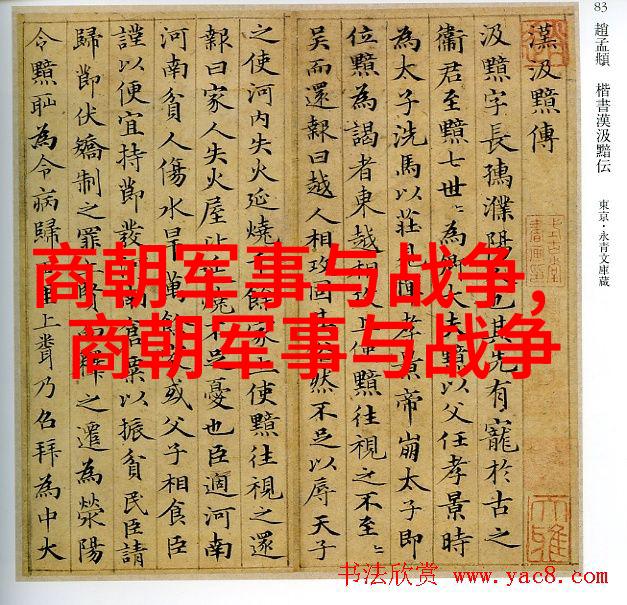 83 趙孟頫 楷書漢汲黯伝 東京・永青文庫蔵
漢汲黯傳
汲黯字長孺濮陽也其先有寵於古之
衛君至黯七世〻為卿大夫黯以父任孝景時
為太子洗馬以莊孝景帝崩太子即
位黯為謁者東越相攻上使黯往視之不至〻
吳而還報曰越人相攻固然不足以辱天子
之使河內失火延燒千餘家上使黯往視之還
報曰家人失火屋比延燒不足憂也臣適河南
河南貧人傷水旱萬餘家或父子相食臣
謹以便宜持節發河南倉粟以振貧民臣請
歸節伏矯制之罪上賢而釋之遷為滎陽
令黯恥為令病歸里上聞乃召拜為中大
商朝军事与战争,
商朝军事与战争
书法欣赏 www.yac8.com